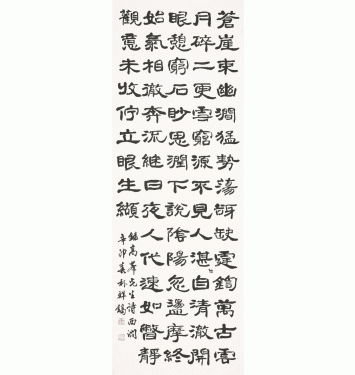 蒼崖束幽澗猛勢蕩訝缺霆鈞萬古雲
月碎二更雪窮源不見人湛自清澈開
眼憩窮石眇思澗下說陰陽忽盪摩終
始氣相澈奔流維日夜人代速如瞥靜
觀意未收佇立眼生纈
高峯先生詩西澗
辛卯春